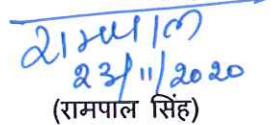 रामपाल
23/11/2020
(रामपाल सिंह)